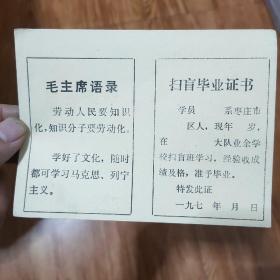 毛主席语录
劳动人民要知识
化，知识分子要劳动化。
学好了文化，随时
都可学习马克思、列宁
主义。
扫盲毕业证书
学员　　系枣庄市
区人，现年　岁，
在　　大队业余学
校扫盲班学习，经验收成
绩及格，准予毕业。
特发此证
一九七　年　月　日